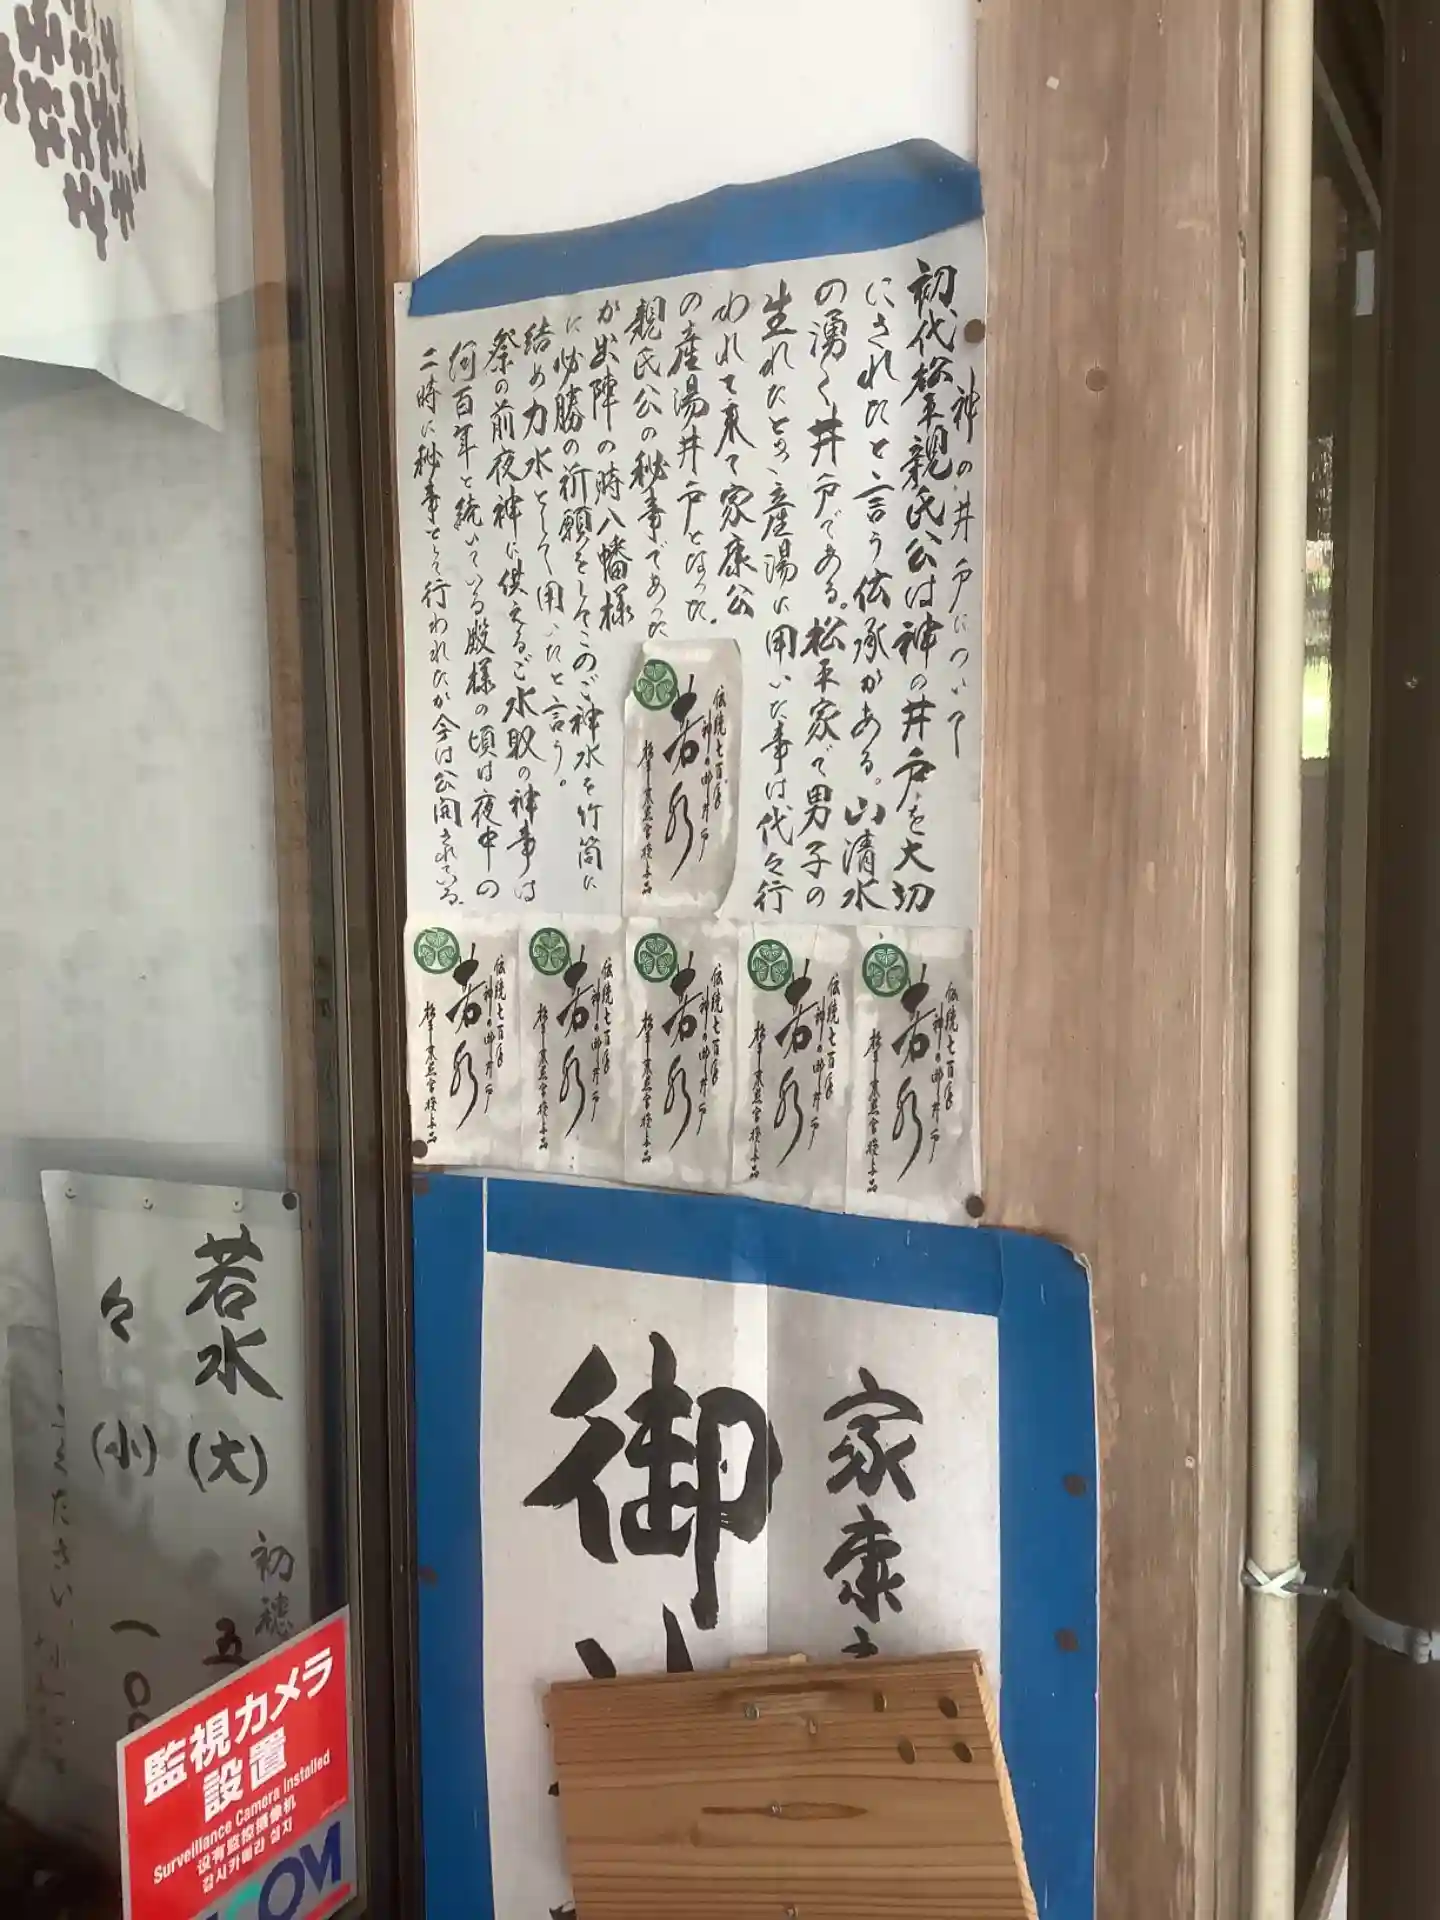 神の井戸について
初代松平親氏公は神の井戸を大切
にされたと言う伝承がある。山清水
の湧く井戸である。松平家で男子の
生れたとき、産湯に用いた事は代々行
われて来て家康公
の産湯井戸となった。
親氏公の秘事であった
が出陣の時八幡様
に必勝の祈願をしてこのご神水を竹筒に
結め力水として用いたと言う。
祭の前夜神に供えるご水取の神事は
何百年と続いている殿様の頃は夜中の
二時に秘事として行われたが今は公開されている。
伝統七百年
神の御井戸
若水
松平東照宮授与品
伝統七百年
神の御井戸
若水
松平東照宮授与品
伝統七百年
神の御井戸
若水
松平東照宮授与品
伝統七百年
神の御井戸
若水
松平東照宮授与品
伝統七百年
神の御井戸
若水
松平東照宮授与品
伝統七百年
神の御井戸
若水
松平東照宮授与品
家康
御
若水(大)
々(小)
初穂
五
一〇〇
監視カメラ
設置
Surveillance Camera Installed
没有监控摄像机
감시카메라 설치